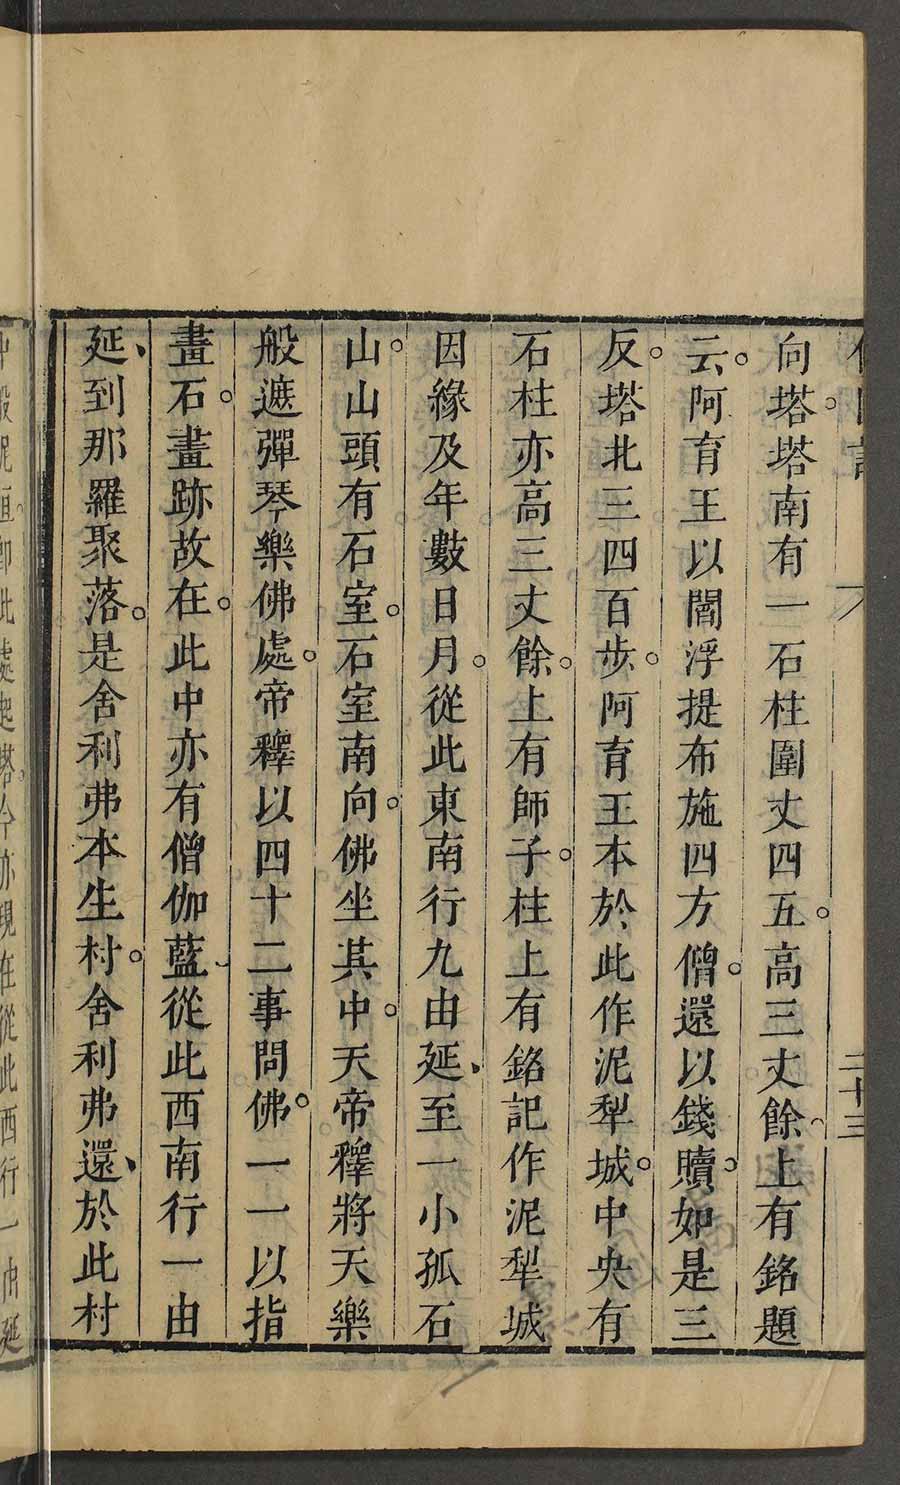 向塔。塔南有一石柱圍丈四五。高三丈餘、上有銘題
云。阿育王以閻浮提布施四方僧。還以錢贖、如是三
反。塔北三四百步。阿育王本於此作泥犁城。中央有
石柱亦高三丈餘。上有師子。柱上有銘記作泥犁城
因緣及年數日月。從此東南行九由延、至一小孤石
山。山頭有石室。石室南向。佛坐其中。天帝釋將天樂
般遮彈琴樂佛處。帝釋以四十二事問佛。一一以指
畫石。畫跡故在。此中亦有僧伽藍、從此西南行一由
延、到那羅聚落。是舍利弗本生村。舍利弗還、於此村
二十三